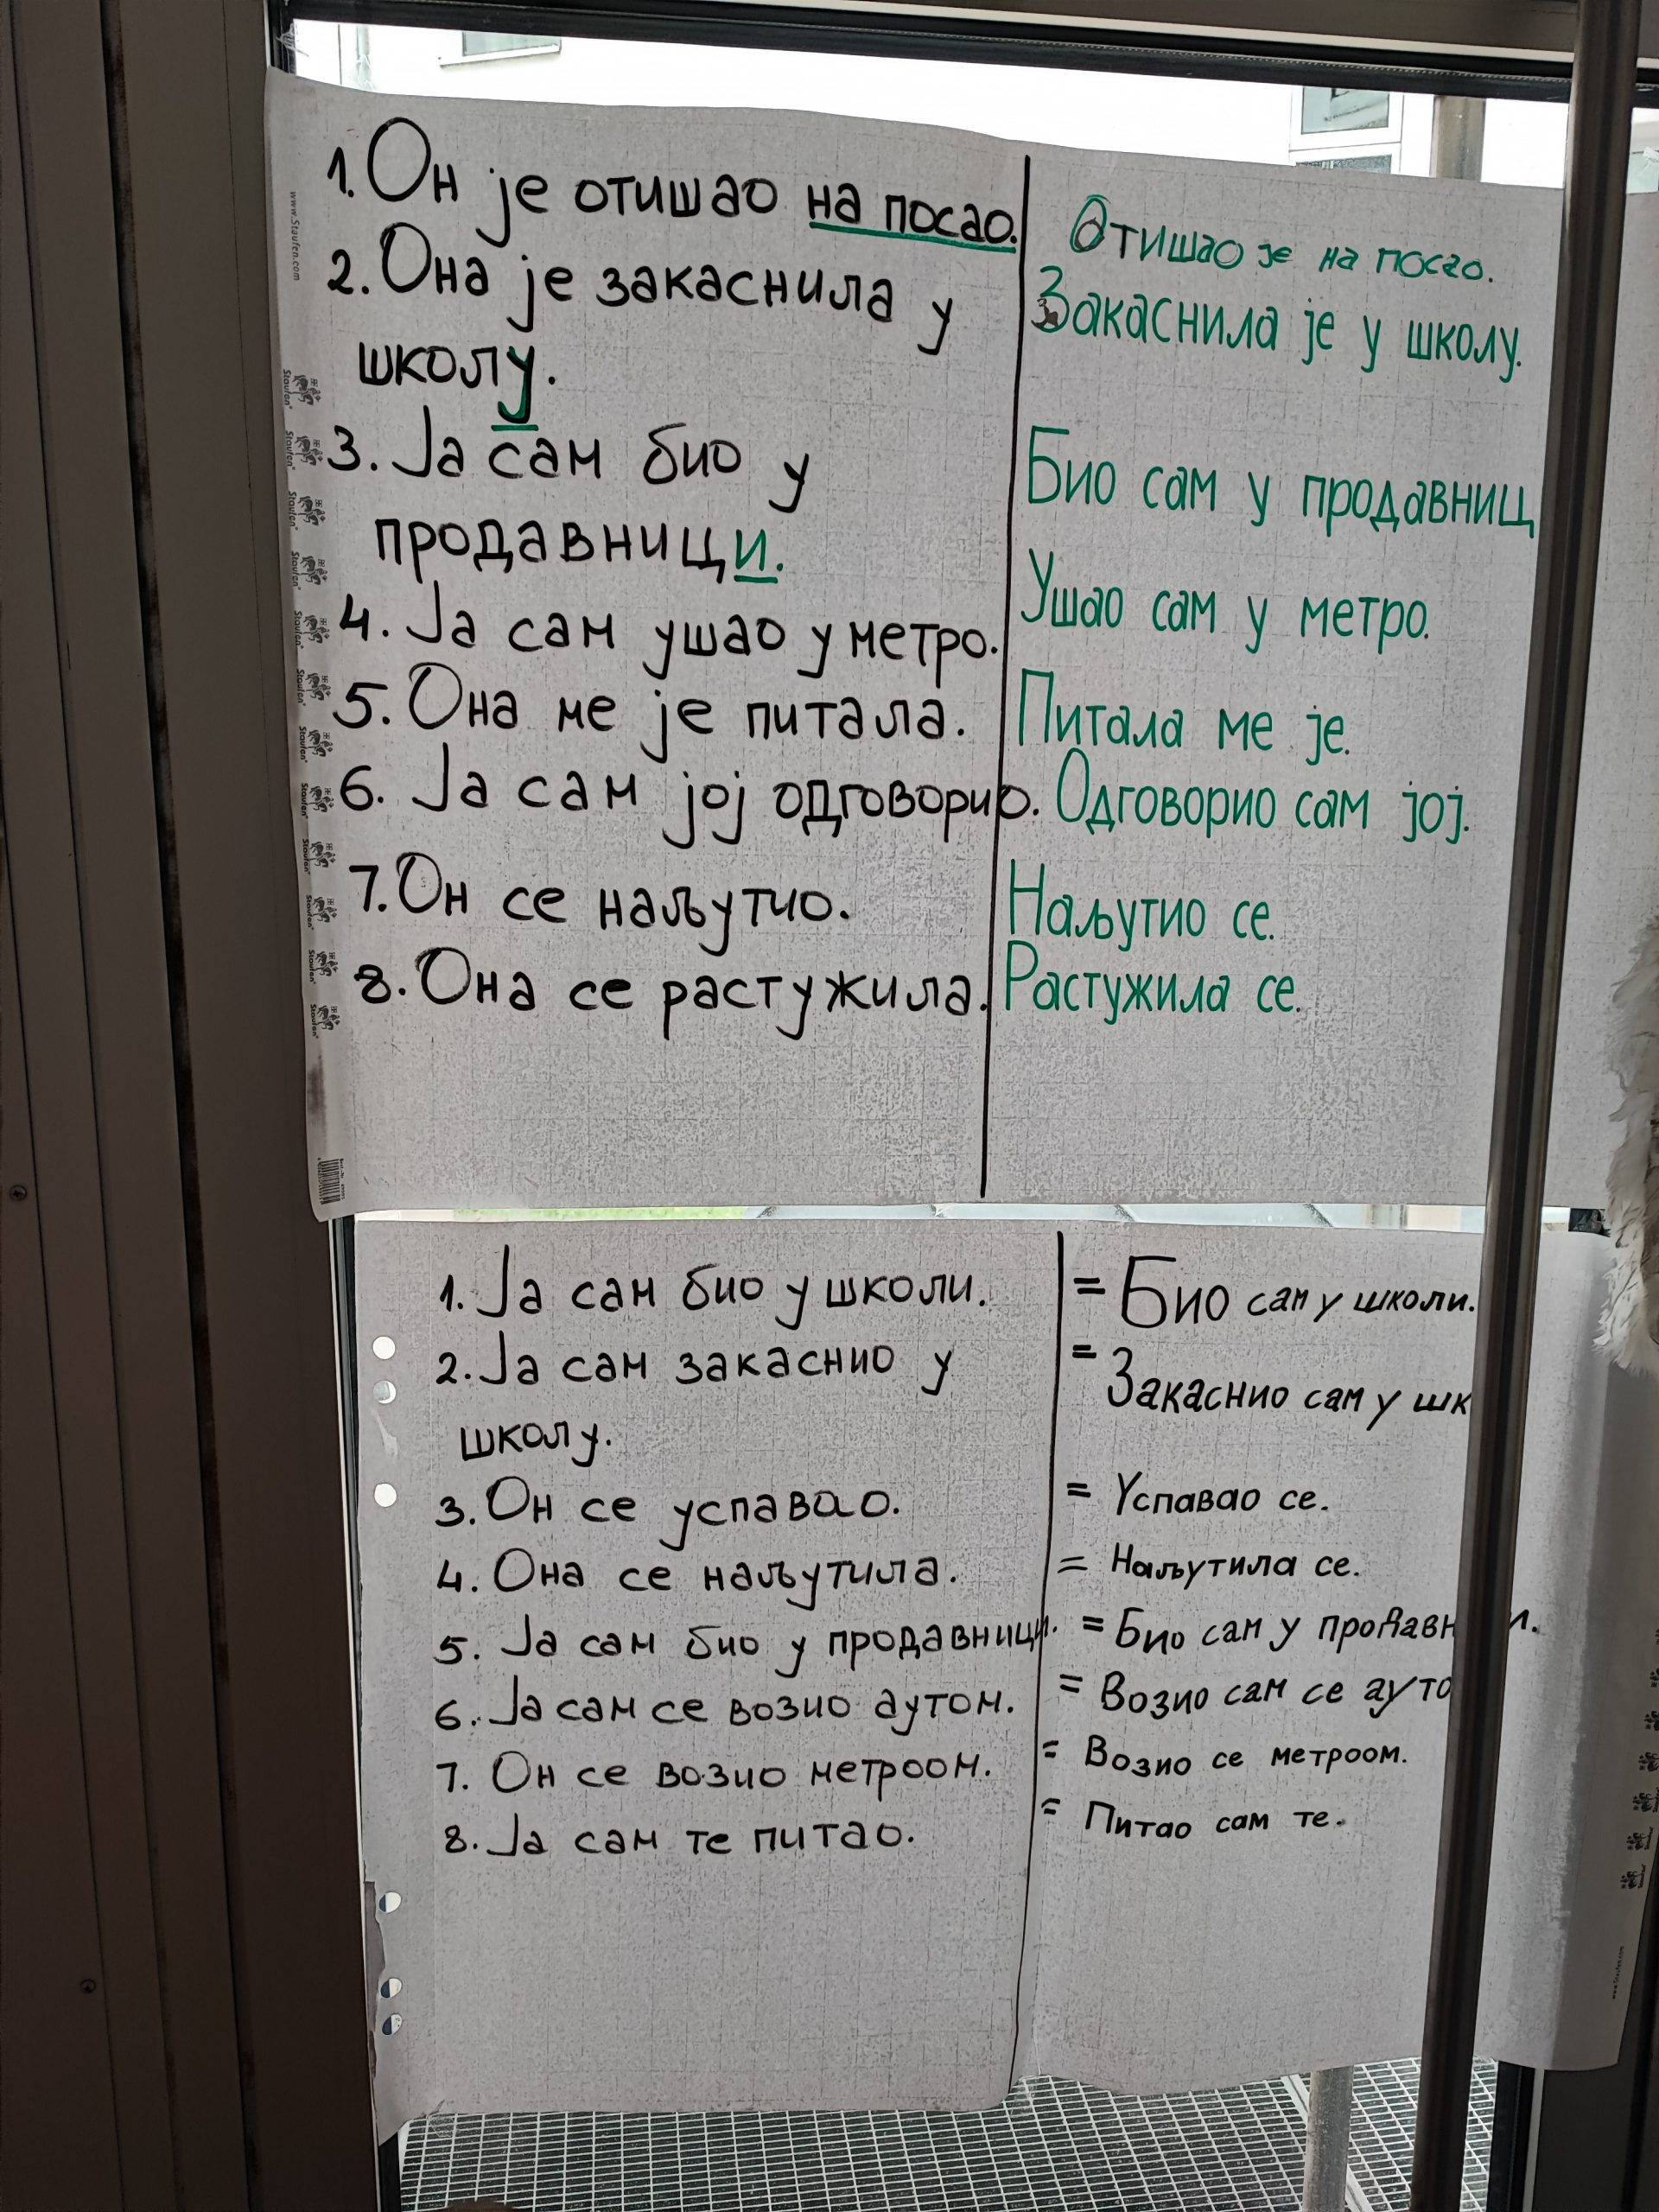 1. Он је отишао на посао.
2. Она је закаснила у
школу.
3. Ја сам био у
продавници.
4. Ја сам ушао у метро.
5. Она ме је питала.
6. Ја сам јој одговорио.
7. Он се наљутио.
8. Она се растужила.
Отишао је на посао.
Закаснила је у школу.
Био сам у продавниц
Ушао сам у метро.
Питала ме је.
Одговорио сам јој.
Наљутио се.
Растужила се.
www.Staufen.com
Staufen
Staufen
Staufen
Staufen
Staufen
Staufen
Staufen
Staufen
Staufen
Staufen
Staufen
Staufen
1. Ја сам био у школи.
2. Ја сам закаснио у
школу.
3. Он се успавао.
4. Она се наљутила.
5. Ја сам био у продавници.
6. Ја сам се возио аутом.
7. Он се возио метроом.
8. Ја сам те питао.
= Био сам у школи.
= Закаснио сам у шк
= Успавао се.
= Наљутила се.
= Био сам у продавн и.
= Возио сам се ауто
= Возио се метроом.
= Питао сам те.